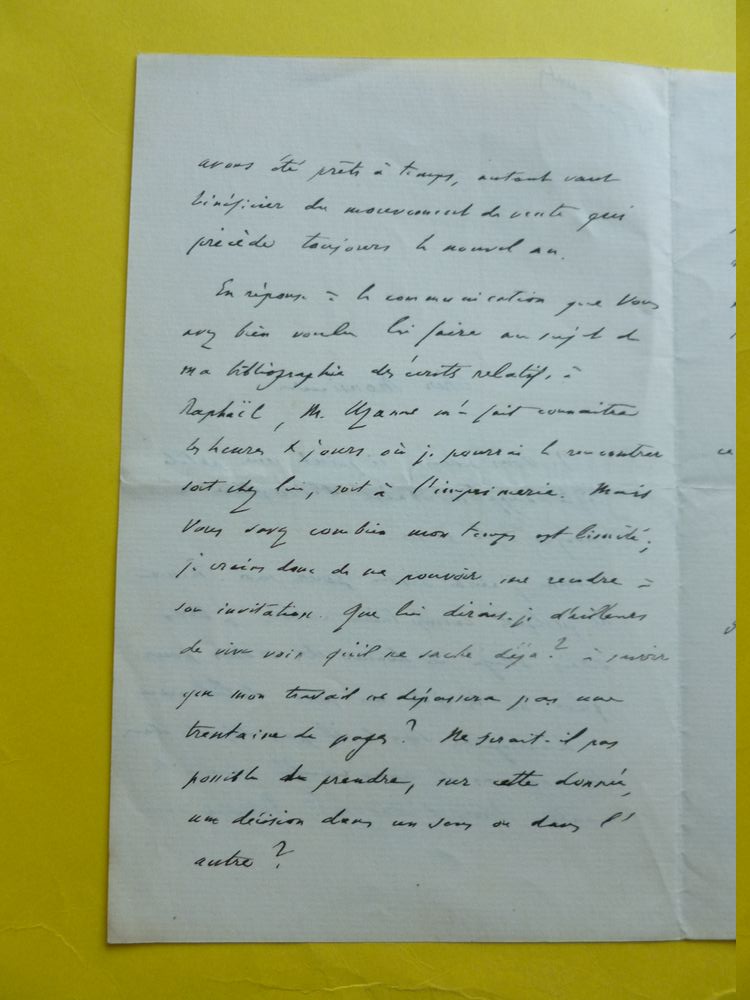 avons été prêts à temps, autant vaut
bénéficier du mouvement de vente qui
précède toujours le nouvel an.
En réponse à la communication que Vous
avez bien voulu lui faire au sujet de
ma bibliographie des écrits relatifs à
Raphaël, M. Uzanne m'a fait connaître
les heures & jours où je pourrai le rencontrer
soit chez lui, soit à l'imprimerie. Mais
Vous savez combien mon temps est limité;
je crains donc de ne pouvoir me rendre à
son invitation. Que lui dirais-je d'ailleurs
de vive voix qu'il ne sache déjà? à savoir
que mon travail ne dépassera pas une
trentaine de pages? Ne serait-il pas
possible de prendre, sur cette donnée,
une décision dans un sens ou dans l'
autre?